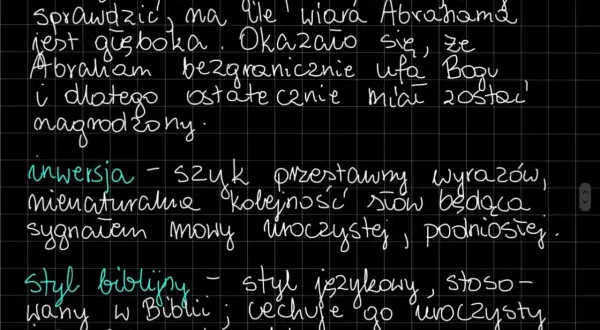 sprawdzić, na ile wiara Abrahama
jest głęboka. Okazało się, że
Abraham bezgranicznie ufa Bogu
i dlatego ostatecznie miał zostać
nagrodzony.
inwersja – szyk przestawny wyrazów,
nienaturalna kolejność słów będąca
sygnałem mowy uroczystej, podniosłej.
styl biblijny – styl językowy, stoso-
wany w Biblii; cechuje go uroczysty